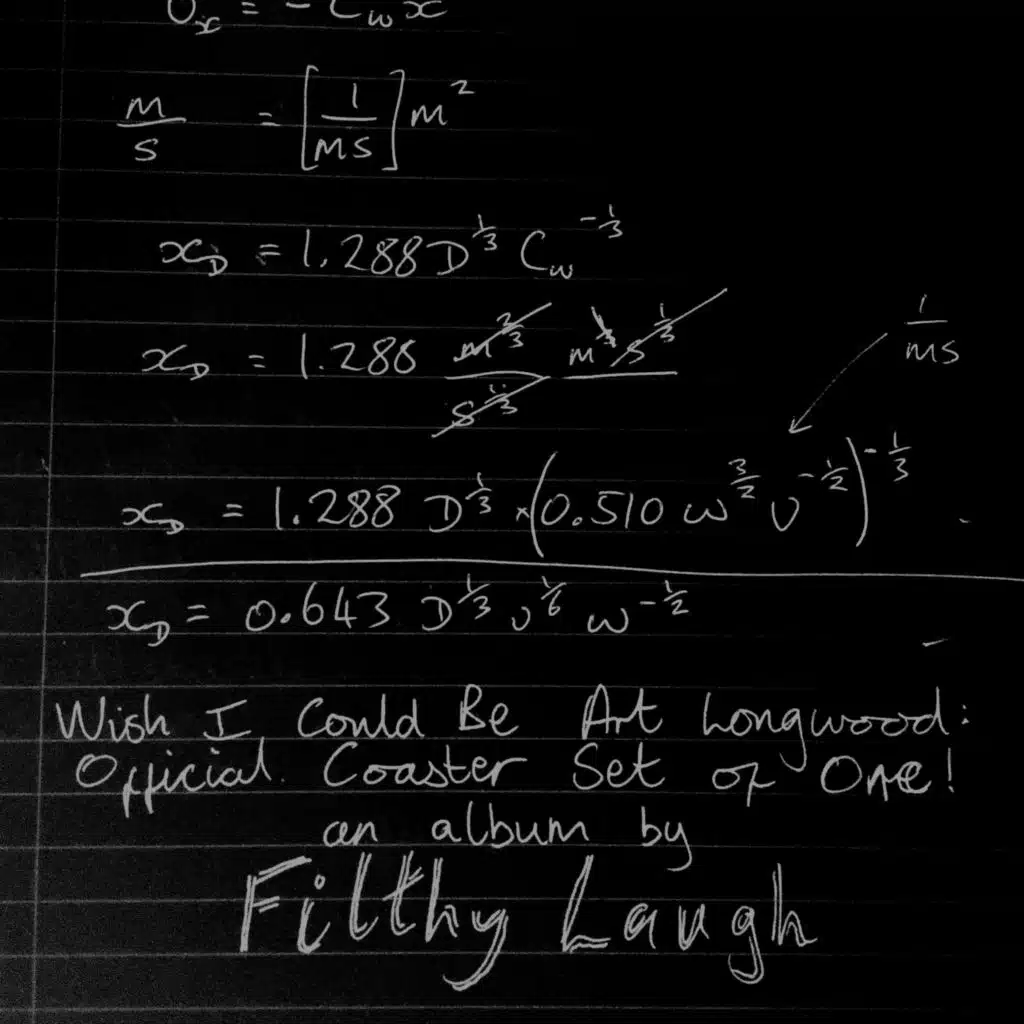 υₓ = - C_w x
m/s = [1/ms] m²
x_D = 1.288 D^⅓ C_w^-⅓
x_D = 1.288 m^⅔/s^⅓ m^⅓ s^⅓
1/ms
x_D = 1.288 D^⅓ × (0.510 ω^3/2 υ^-½)^-⅓
x_D = 0.643 D^⅓ υ^⅙ ω^-½
Wish I Could Be Art Longwood:
Official Coaster Set of One!
an album by
Filthy Laugh